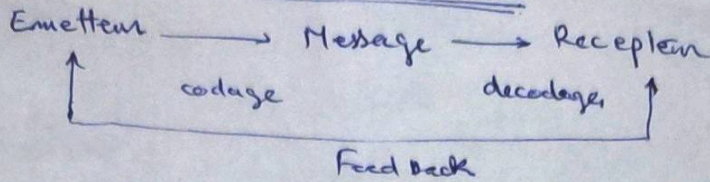 Emetteur Message Recepteur
codage decodage
Feed Back